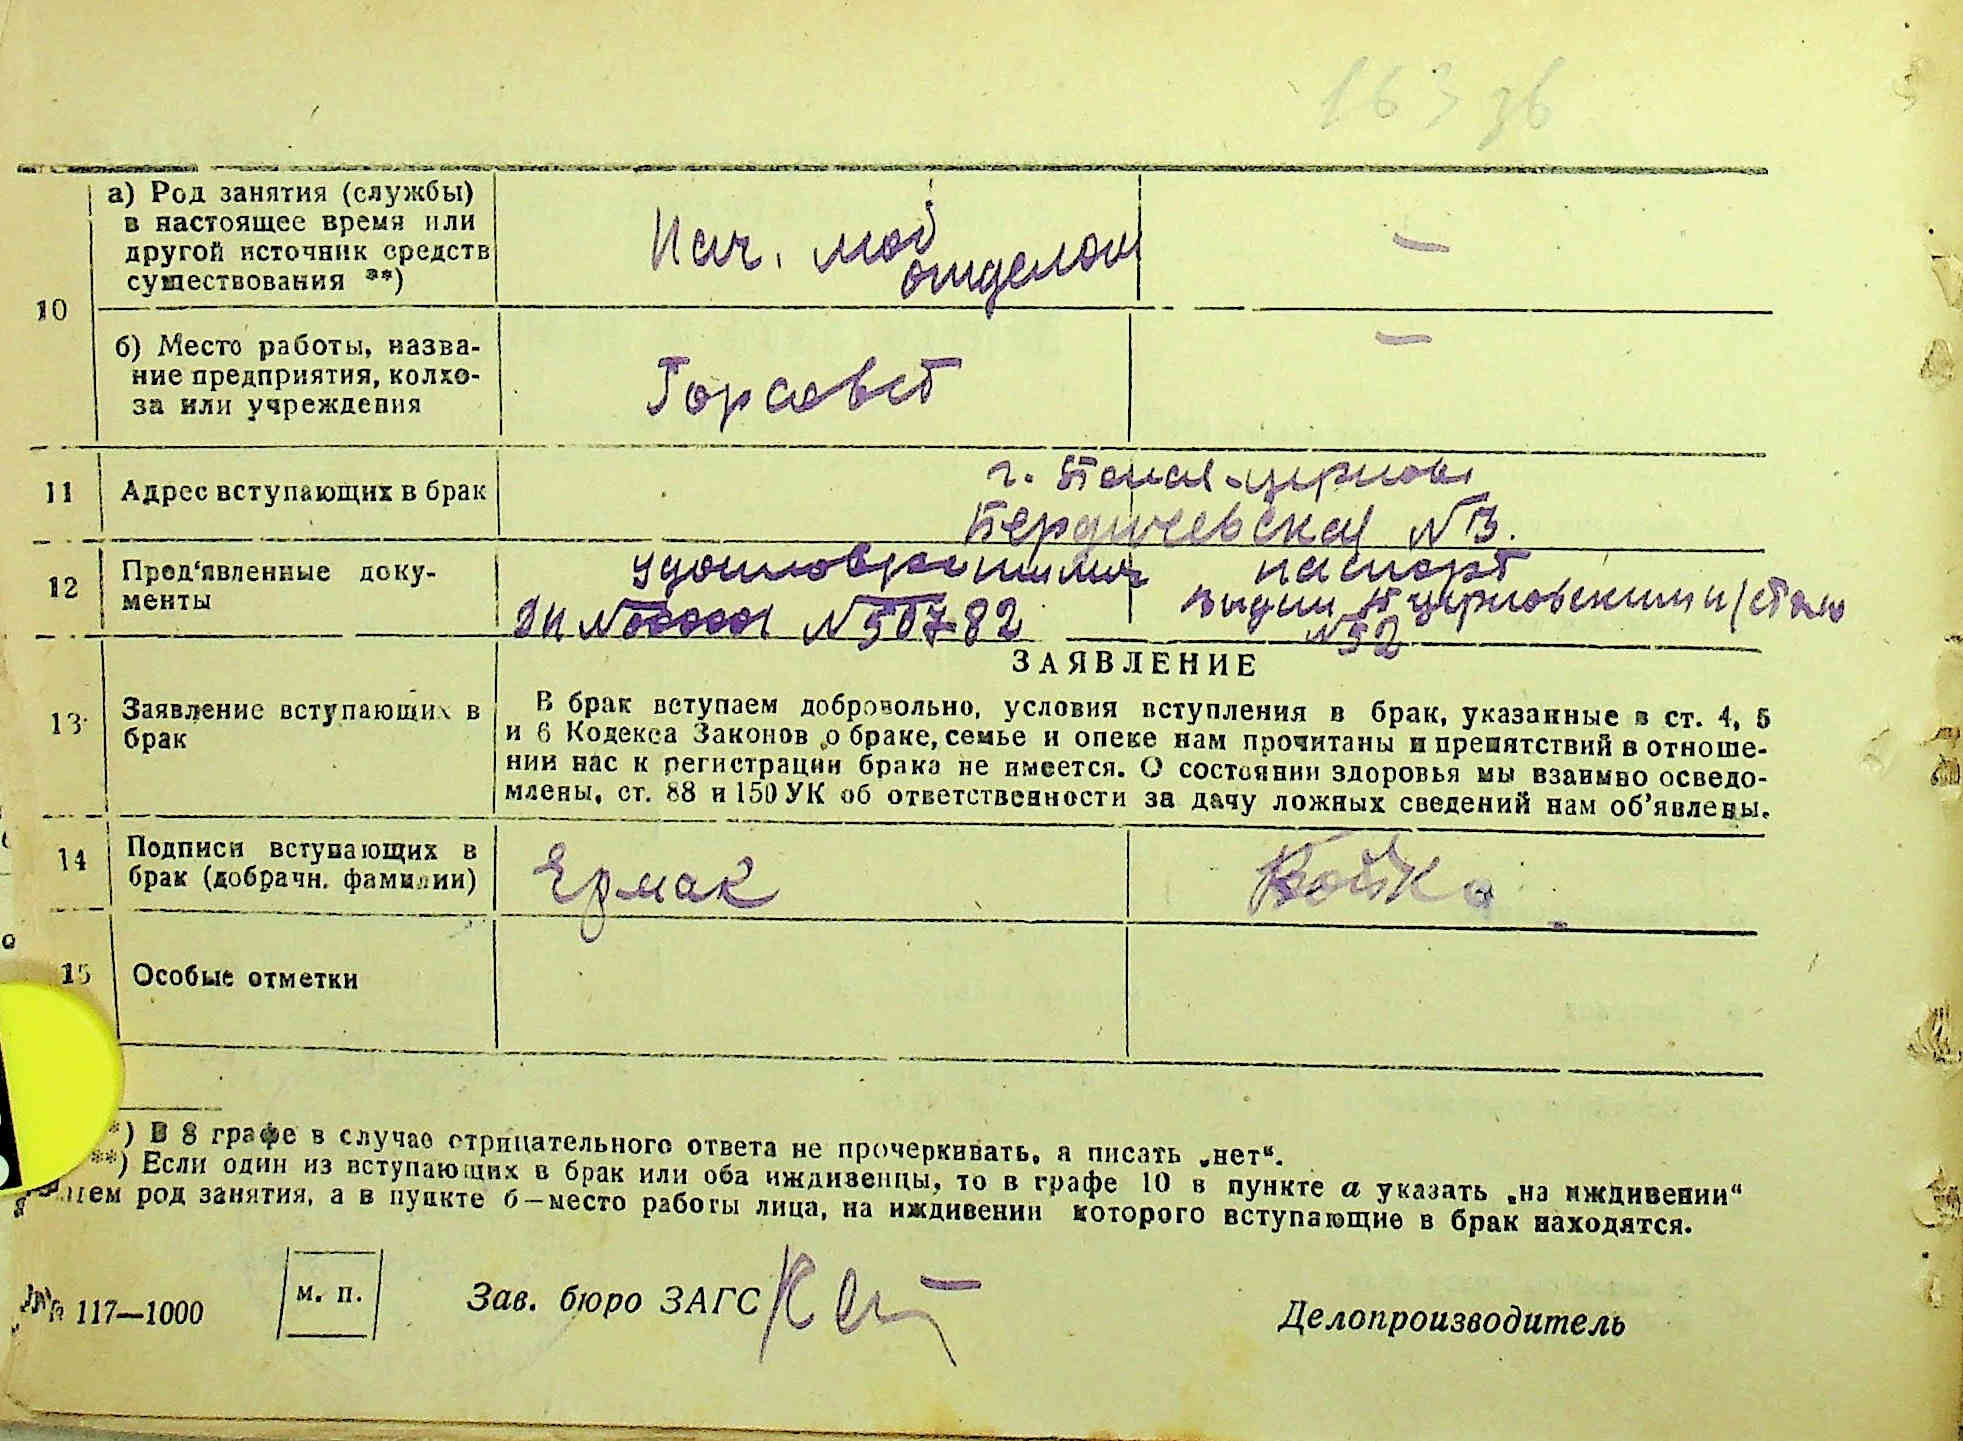 163 зв
а) Род занятия (службы)
в настоящее время или
другой источник средств
существования **)
Нач. моб
отделом
—
10
б) Место работы, назва-
ние предприятия, колхо-
за или учреждения
Горсовет
—
11
Адрес вступающих в брак
г. Белая-церковь
Бердичевская № 3.
12
Пред'явленные доку-
менты
паспорт
№50782
№52
ЗАЯВЛЕНИЕ
13
Заявление вступающих в
брак
В брак вступаем добровольно, условия вступления в брак, указанные в ст. 4, 5
и 6 Кодекса Законов о браке, семье и опеке нам прочитаны и препятствий в отноше-
нии нас к регистрации брака не имеется. О состоянии здоровья мы взаимно осведо-
млены, ст. 88 и 150 УК об ответственности за дачу ложных сведений нам об'явлены.
14
Подписи вступающих в
брак (добрачн. фамилии)
Ермак
Бойко
15
Особые отметки
*) В 8 графе в случае отрицательного ответа не прочеркивать, а писать „нет“.
**) Если один из вступающих в брак или оба иждивенцы, то в графе 10 в пункте а указать „на иждивении“
род занятия, а в пункте б—место работы лица, на иждивении которого вступающие в брак находятся.
117—1000
м. п.
Зав. бюро ЗАГС
Делопроизводитель